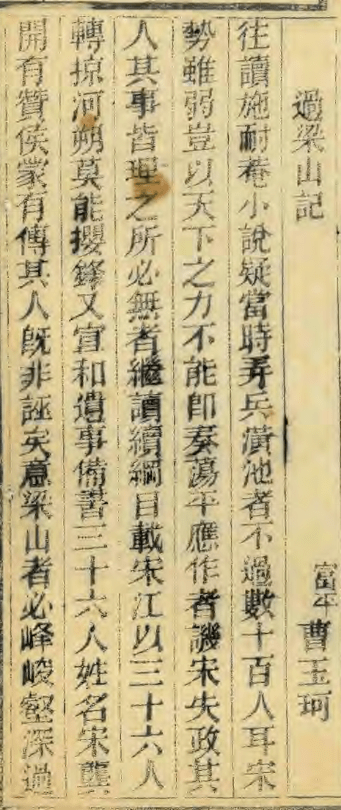 過梁山記
富平曹玉珂
往讀施耐菴小說疑當時弄兵潢池者不過數十百人耳宋
勢雖弱豈以天下之力不能即奏蕩平應作者譏宋失政其
人其事皆理之所必無者繼讀續綱目載宋江以三十六人
轉掠河朔莫能攖鋒又宣和遺事備書三十六人姓名宋龔
開有贊侯蒙有傳其人旣非誣矣意梁山者必峰峻壑深過